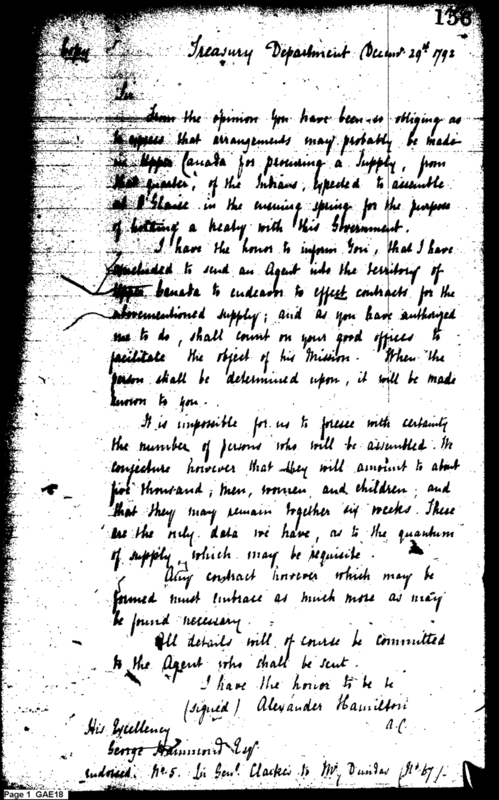 156
Copy
Treasury Department Decemr 29th 1792
Sir
From the opinion You have been so obliging as
to express that arrangements may probably be made
in Upper Canada for procuring a Supply, from
that quarter, of the Indians, expected to assemble
at O'Glaise in the ensuing spring for the purpose
of holding a treaty with this Government.
I have the honor to inform You, that I have
concluded to send an Agent into the territory of
Upper Canada to endeavor to effect contracts for the
abovementioned supply; and as you have authorized
me to do, shall count on your good offices to
facilitate the object of his Mission. When the
person shall be determined upon, it will be made
known to you.
It is impossible for us to foresee with certainty
the number of persons who will be assembled. We
conjecture however that they will amount to about
five thousand; men, women, and children; and
that they may remain together six weeks. These
are the only data we have, as to the quantum
of supply, which may be requisite.
Any contract however which may be
formed must embrace as much more as may
be found necessary
All details will of course be committed
to the Agent who shall be sent.
I have the honor to be &c
(signed) Alexander Hamilton
His Excellency
George Hammond Esqr
endorsed. No. 5. In Genl. Clarke's to Mr Dundas (No 67)
Page 1 GAE18